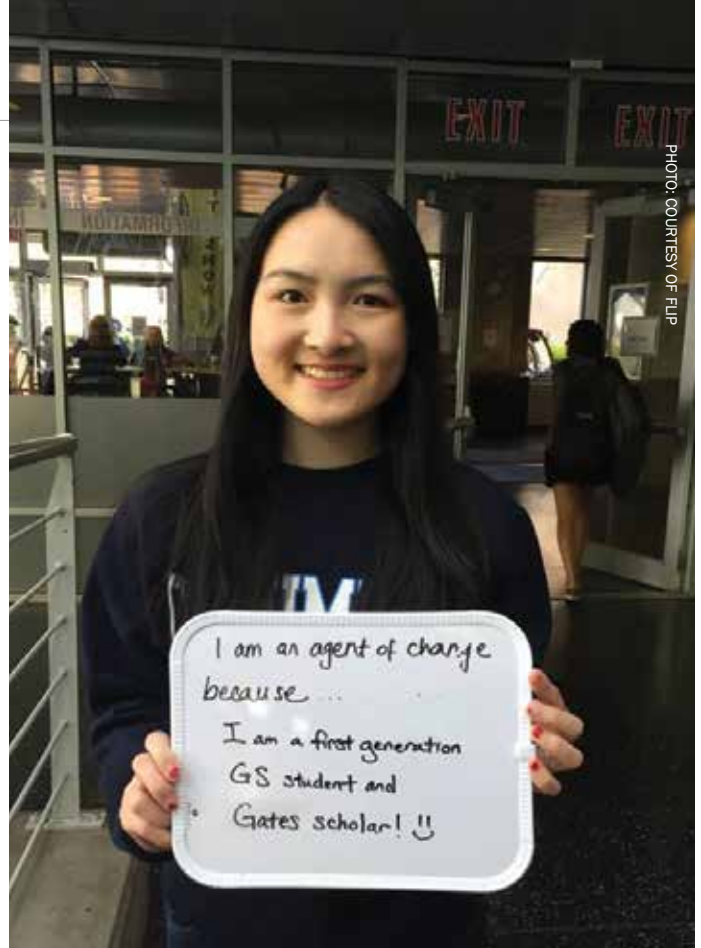 EXIT
EXIT
PHOTO: COURTESY OF FLIP
INFORMATION
IM
I am an agent of change
because...
I am a first generation
GS student and
Gates scholar! !!